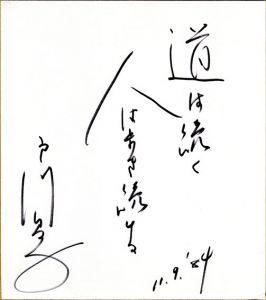 道は続く
人は歩き続ける
戸川昌子
11.9.'84